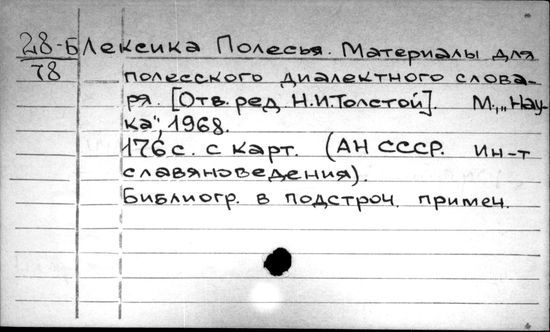 28-Б Лексика Полесья. Материалы для
78 полесского диалектного слова-
ря. [Отв. ред. Н.И.Толстой]. М., „Нау-
ка", 1968.
176 с. с карт. (АН СССР. Ин-т
славяноведения).
Библиогр. в подстроч. примеч.